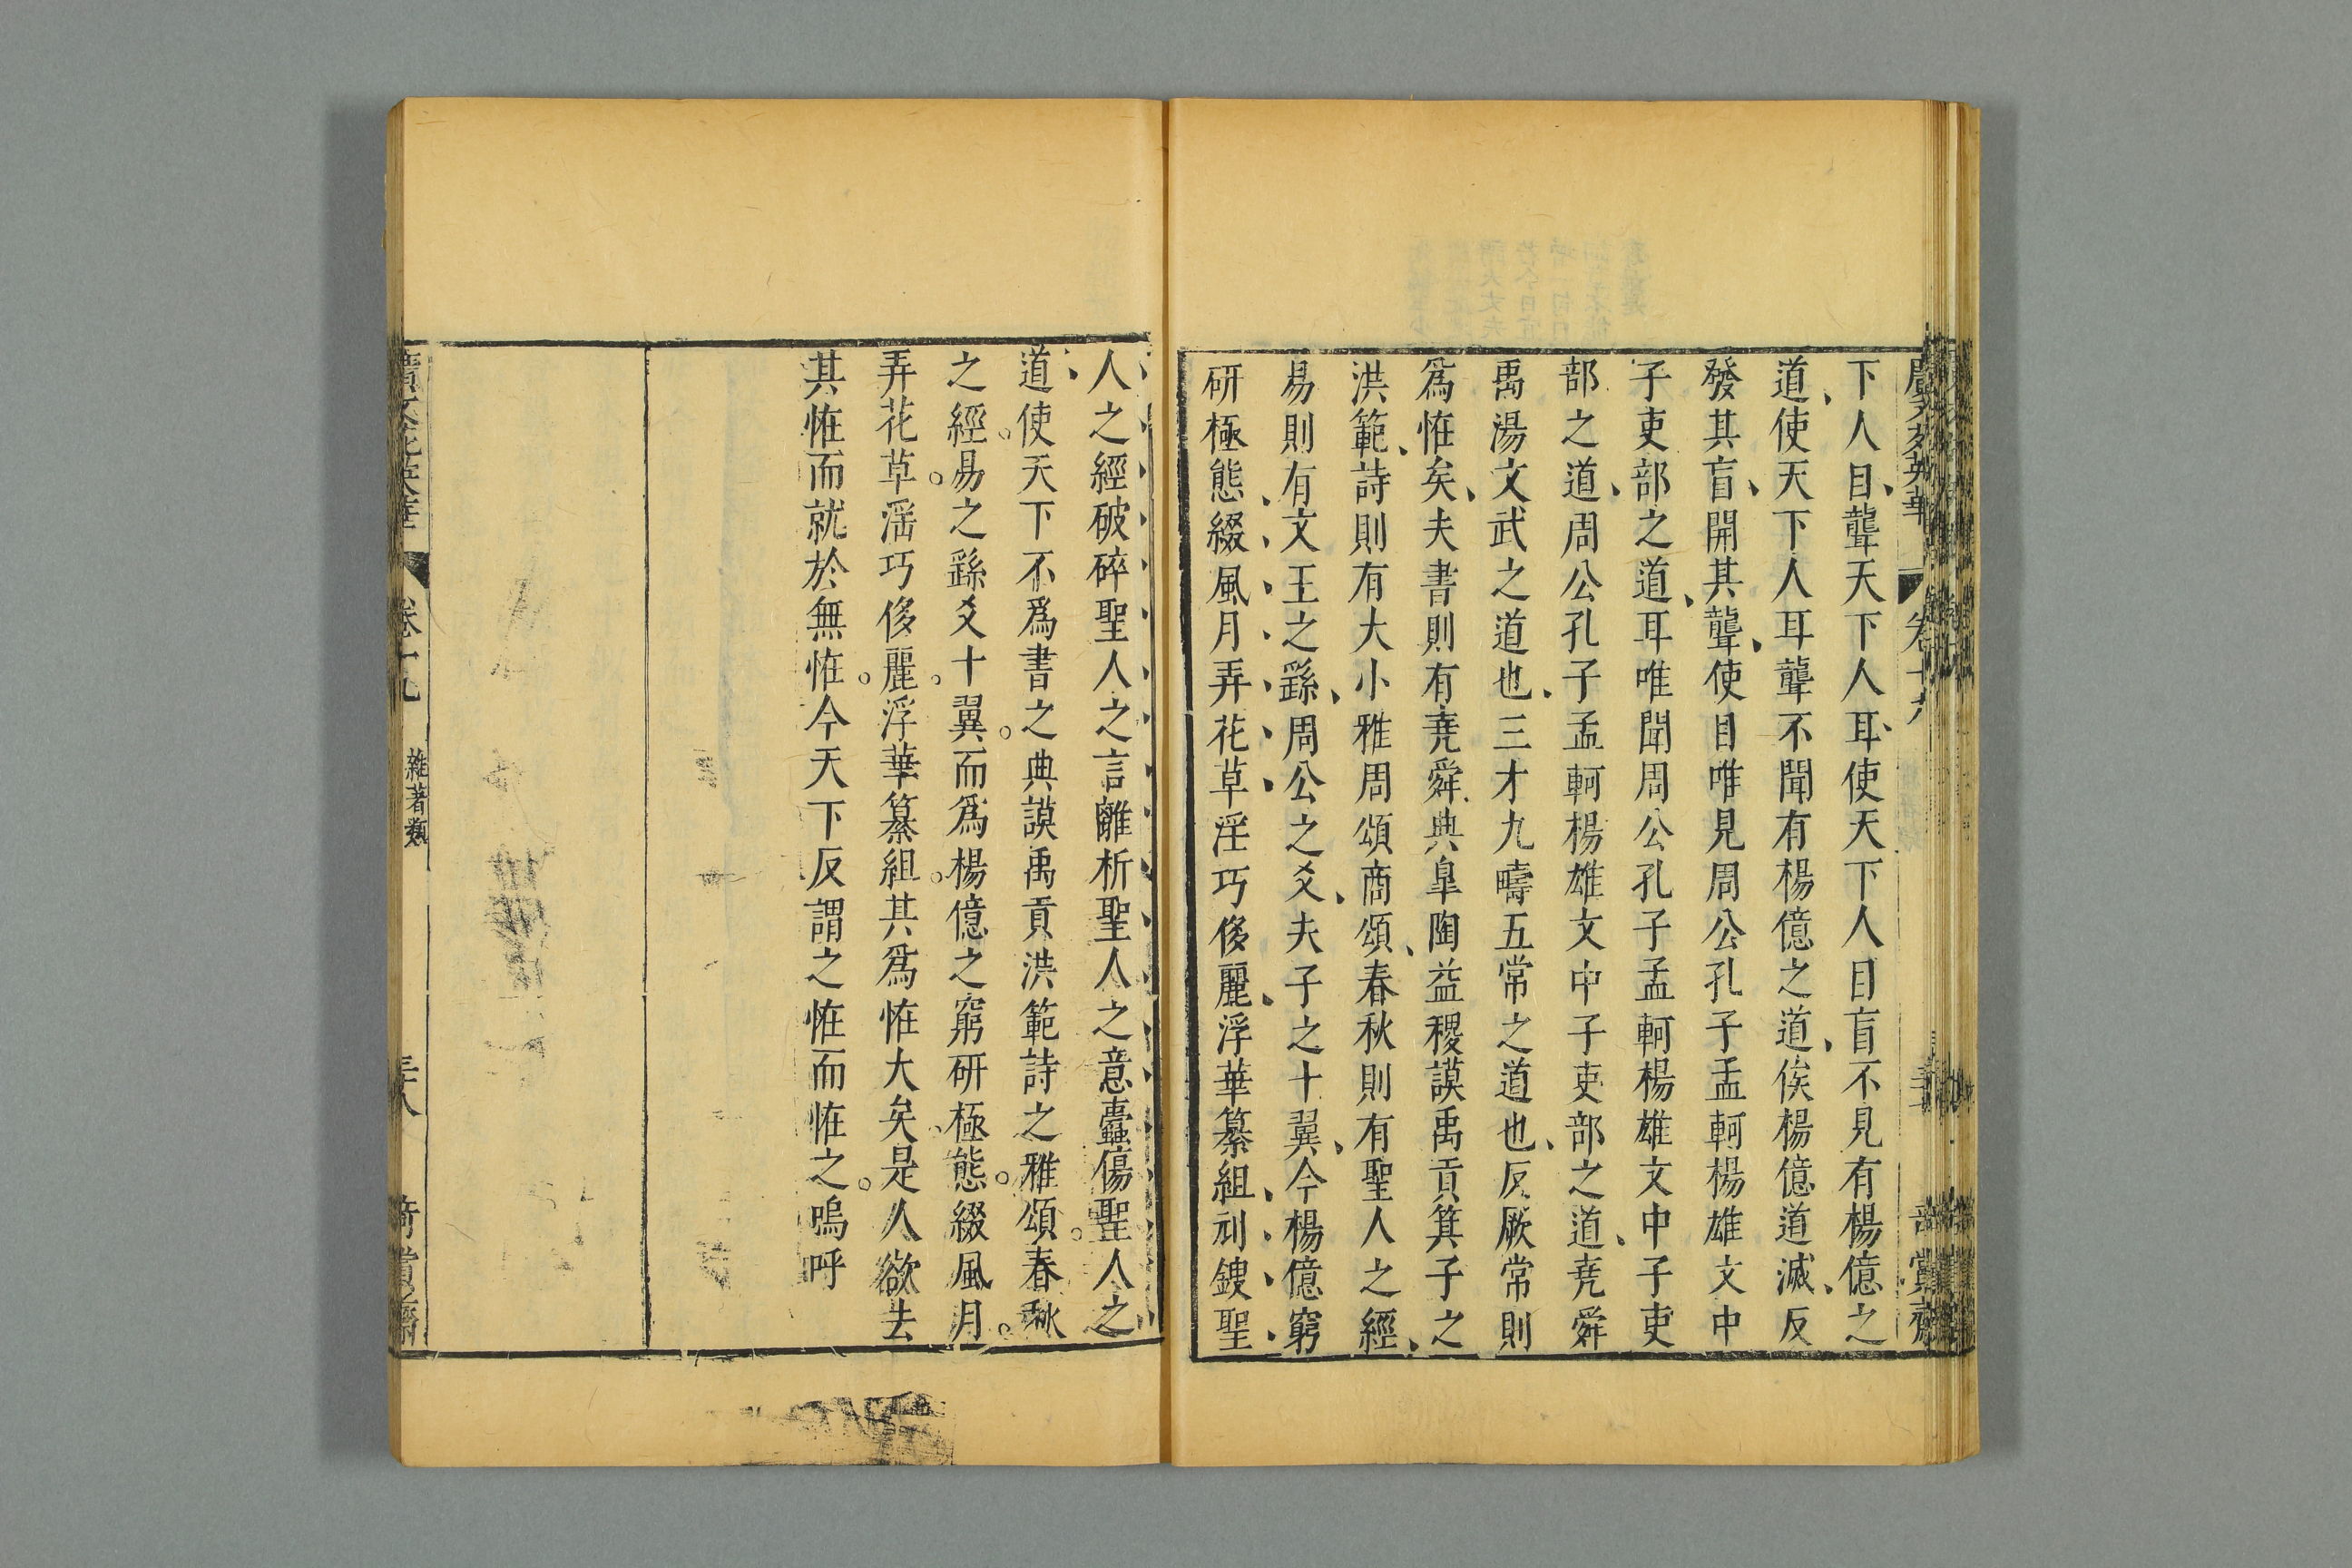 下人目聾天下人耳使天下人目盲不見有楊億之
道使天下人耳聾不聞有楊億之道俟楊億道滅反
發其盲開其聾使目唯見周公孔子孟軻楊雄文中
子吏部之道耳唯聞周公孔子孟軻楊雄文中子吏
部之道周公孔子孟軻楊雄文中子吏部之道堯舜
禹湯文武之道也三才九疇五常之道也反厥常則
爲恠矣夫書則有堯舜典臯陶益稷謨禹貢箕子之
洪範詩則有大小雅周頌商頌春秋則有聖人之經
易則有文王之繇周公之爻夫子之十翼今楊億窮
研極態綴風月弄花草淫巧侈麗浮華纂組刓鎪聖
人之經破碎聖人之言離析聖人之意蠹傷聖人之
道使天下不爲書之典謨禹貢洪範詩之雅頌春秋
之經易之繇爻十翼而爲楊億之窮研極態綴風月
弄花草滛巧侈麗浮華纂組其爲恠大矣是人欲去
其恠而就於無恠今天下反謂之恠而恠之嗚呼
廣文苑英華
卷十九
雜著類
奇賞齋